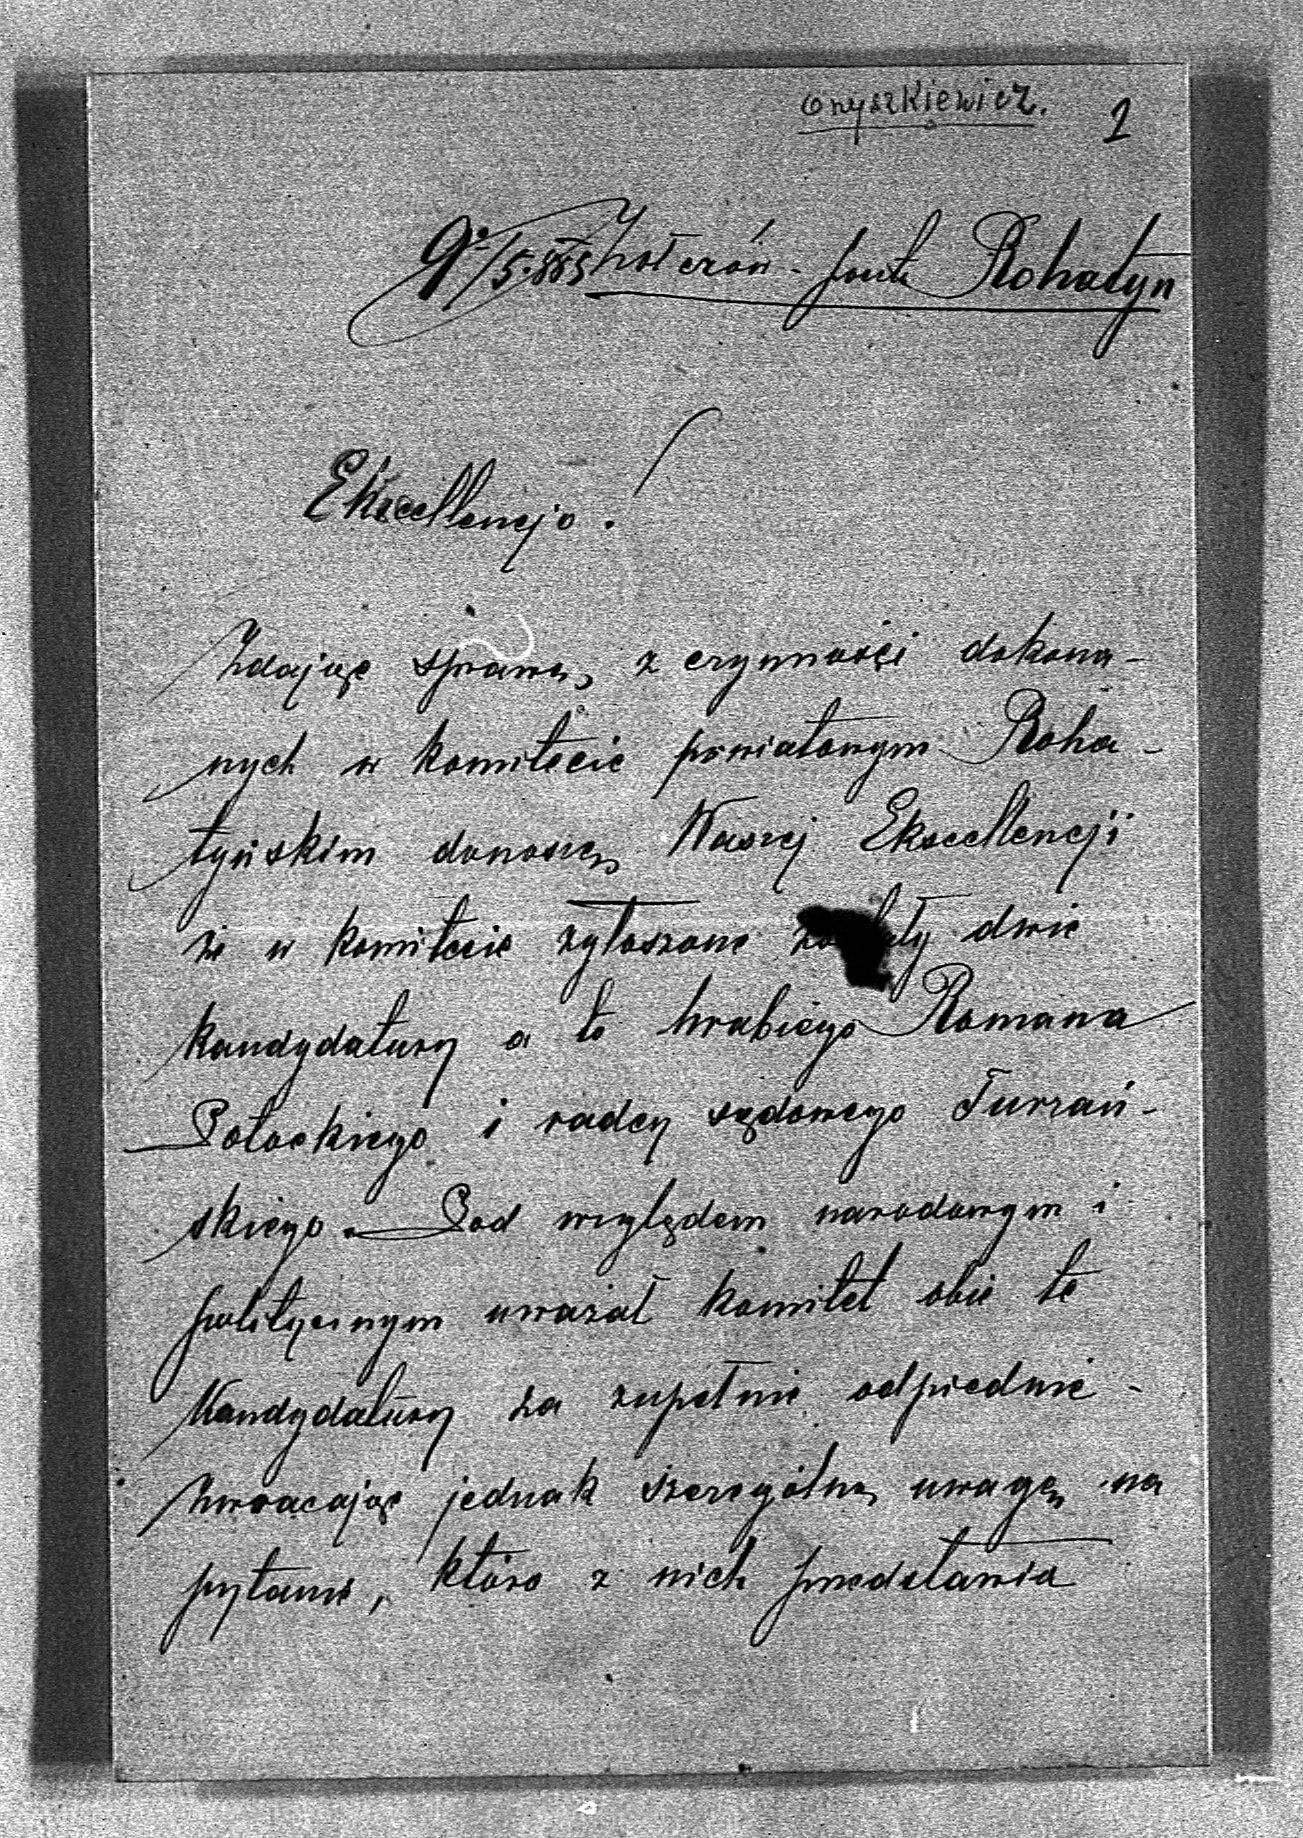 Onyszkiewicz. 1
9./5. 885 Żołczów - poczta Rohatyn
Ekscellencjo!
Zdając sprawę z czynności dokona-
nych w komitecie powiatowym Roha-
tyńskim donoszę Waszej Ekscellencji
że w komitecie zgłoszone zostały dwie
kandydatury a to hrabiego Romana
Potockiego i radcy sądowego Turzań-
skiego. Pod względem narodowym i
politycznym uważał komitet obie te
Kandydatury za zupełnie odpiednie -
zwracając jednak szczególną uwagę na
pytanie, która z nich przedstawia